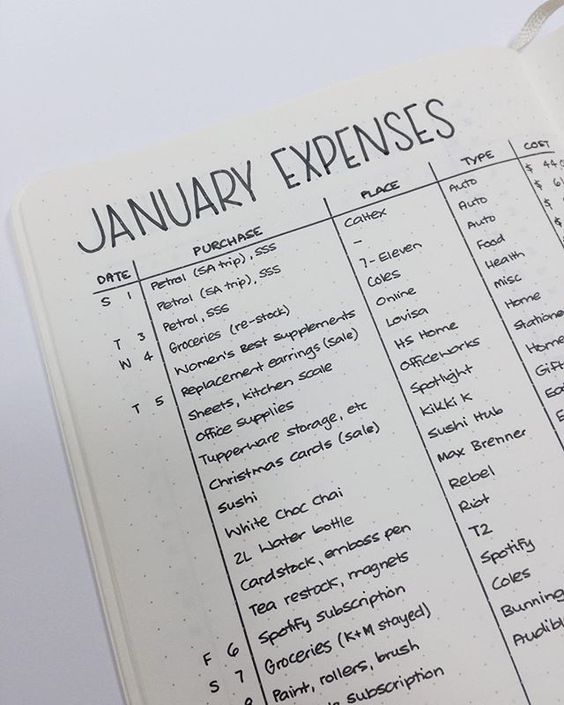 JANUARY EXPENSES
DATE PURCHASE PLACE TYPE COST
S 1 Petrol (SA trip), SSS Caltex Auto $ 44
Petrol (SA trip), SSS – Auto $
T 3 Petrol, SSS 7-Eleven Auto $
W 4 Groceries (re-stock) Coles Food $
Women's Best Supplements Online Health
T 5 Replacement earrings (sale) Lovisa Misc
Sheets, kitchen scale HS Home Home
Office supplies Officeworks Statione
Tupperware storage, etc Spotlight Home
Christmas cards (sale) Kikki K Gift
Sushi Sushi Hub
White choc chai Max Brenner
2L water bottle Rebel
Cardstock, emboss pen Riot
Tea restock, magnets T2
F 6 Spotify subscription Spotify
S 7 Groceries (K+M stayed) Coles
Paint, rollers, brush Bunning
subscription Audibl